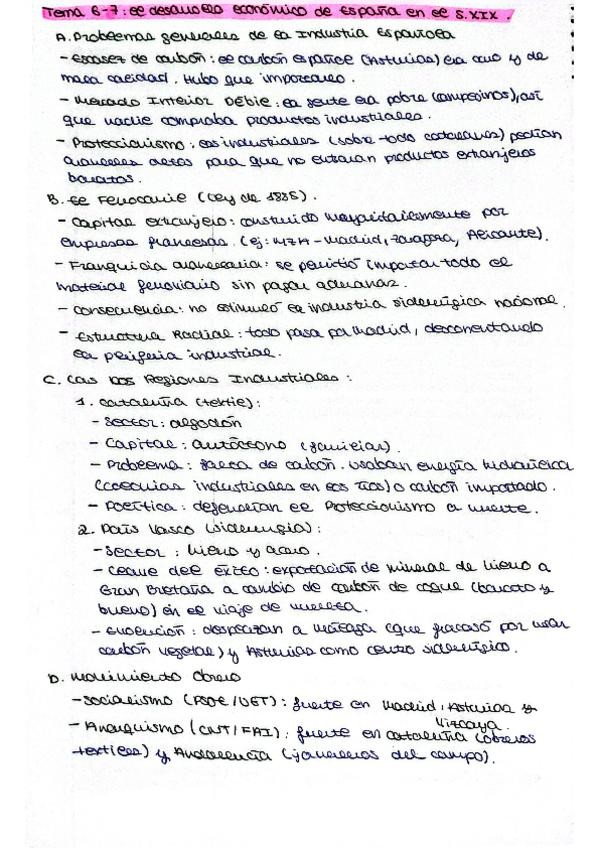 Tema 6-7: el desarrollo económico de España en el S.XIX.
A. Problemas generales de la Industria Española
- escasez de carbón: el carbón español (Asturias) era caro y de
mala calidad. Hubo que importarlo.
- Mercado Interior Débil: la gente era pobre (campesinos), así
que nadie compraba productos industriales.
- Proteccionismo: los industriales (sobre todo catalanes) pedían
aranceles altos para que no entraran productos extranjeros
baratos.
B. El Ferrocarril (Ley de 1855).
- Capital extranjero: construido mayoritariamente por
empresas francesas. (ej: MZA - Madrid, Zaragoza, Alicante).
- Franquicia arancelaria: se permitió importar todo el
material ferroviario sin pagar aduanas.
- consecuencia: no estimuló la industria siderúrgica nacional.
- Estructura Radial: todo pasa por Madrid, desconectando
la periferia industrial.
C. Las Dos Regiones Industriales:
1. Cataluña (textil):
- Sector: algodón
- Capital: autóctono (familias).
- Problema: falta de carbón. usaban energía hidráulica
(colonias industriales en los ríos) o carbón importado.
- Política: defendían el Proteccionismo a muerte.
2. País Vasco (siderurgia):
- Sector: hierro y acero.
- Clave del éxito: exportación de mineral de hierro a
Gran Bretaña a cambio de carbón de coque (barato y
bueno) en el viaje de vuelta.
- evolución: desplazan a Málaga (que fracasó por usar
carbón vegetal) y Asturias como centro siderúrgico.
D. Movimiento Obrero
- Socialismo (PSOE/UGT): fuerte en Madrid, Asturias y
Vizcaya.
- Anarquismo (CNT/FAI): fuerte en Cataluña (obreros
textiles) y Andalucía (jornaleros del campo).